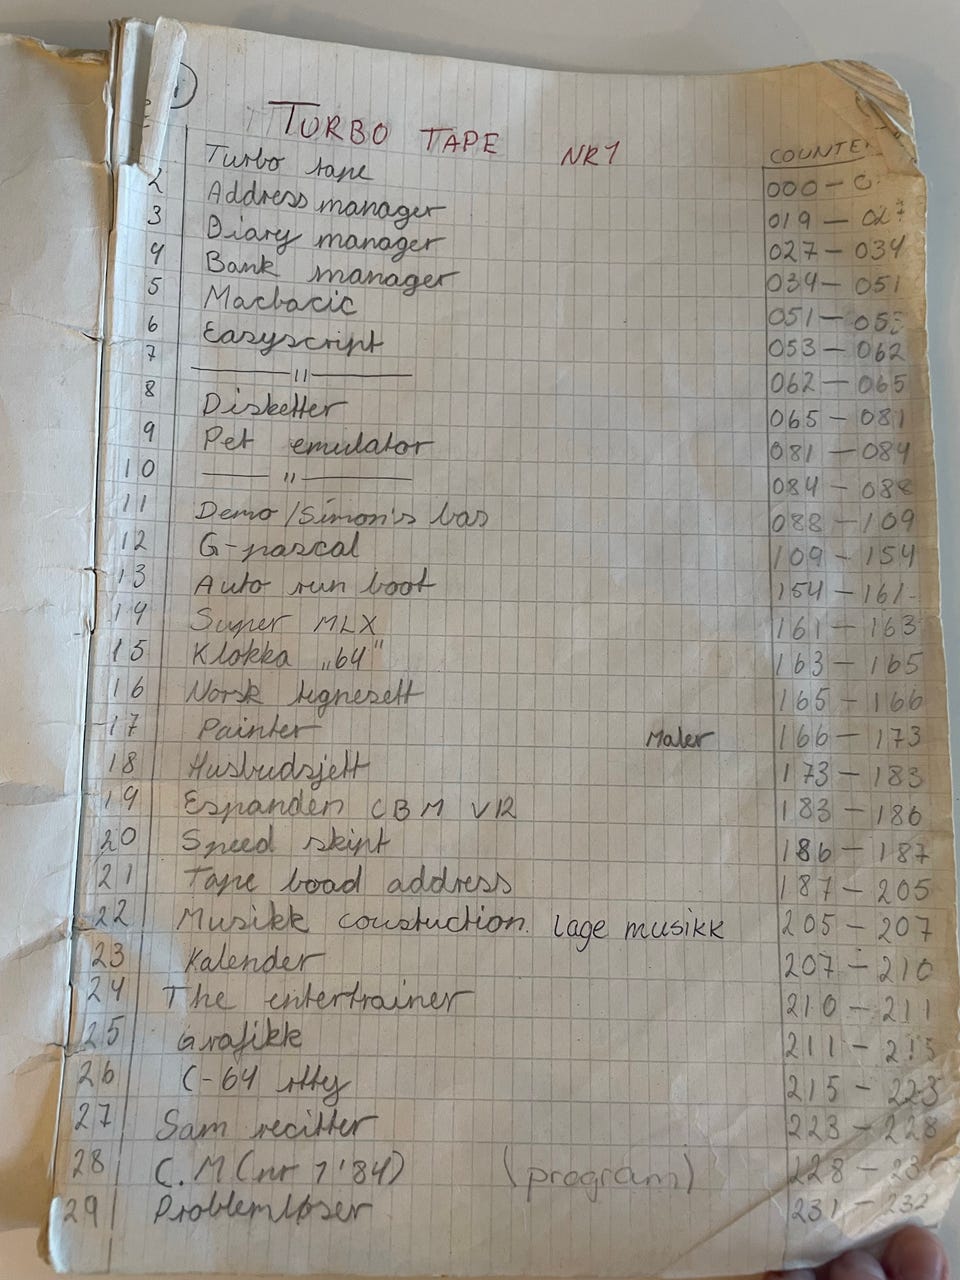 1
TURBO TAPE NR1
COUNTE
Turbo tape 000 –
2 Address manager 019 – 027
3 Diary manager 027 – 034
4 Bank manager 034 – 051
5 Macbacic 051 – 053
6 Easyscript 053 – 062
7 —— " —— 062 – 065
8 Disketter 065 – 081
9 Pet emulator 081 – 084
10 —— " —— 084 – 088
11 Demo / Simon's bas 088 – 109
12 G-pascal 109 – 154
13 Auto run boot 154 – 161
14 Super MLX 161 – 163
15 Klokka „64" 163 – 165
16 Norsk tegnesett 165 – 166
17 Painter Maler 166 – 173
18 Husbudsjett 173 – 183
19 Espanden CBM V12 183 – 186
20 Speed skipt 186 – 187
21 Tape boad address 187 – 205
22 Musikk constuction. lage musikk 205 – 207
23 Kalender 207 – 210
24 The entertrainer 210 – 211
25 Grafikk 211 – 215
26 C-64 rtty 215 – 223
27 Sam recitter 223 – 228
28 C.M (nr 1 '84) (program) 228 – 23
29 Problemløser 231 – 232